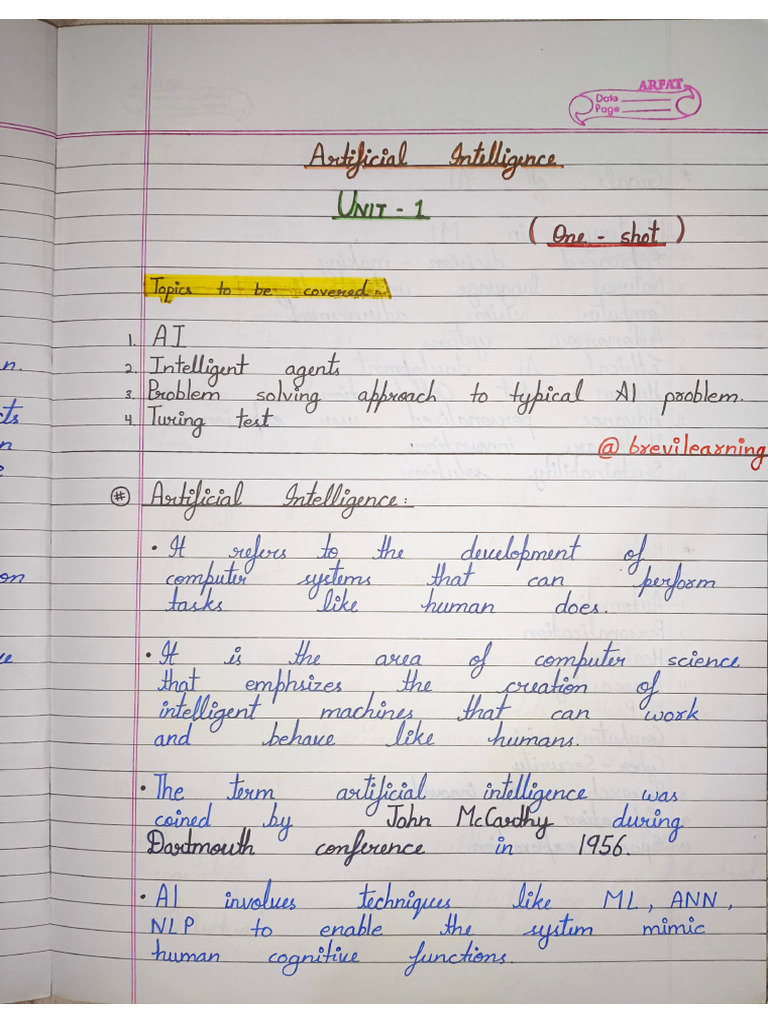 ARFAT
Date
Page
Artificial Intelligence
UNIT - 1
( One - shot )
Topics to be covered
1. AI
2. Intelligent agents
3. Problem solving approach to typical AI problem.
4. Turing test
@ brevilearning
# Artificial Intelligence :
• It refers to the development of
computer systems that can perform
tasks like human does.
• It is the area of computer science
that emphsizes the creation of
intelligent machines that can work
and behave like humans.
• The term artificial intelligence was
coined by John McCardhy during
Dartmouth conference in 1956.
• AI involves techniques like ML, ANN,
NLP to enable the system mimic
human cognitive functions.